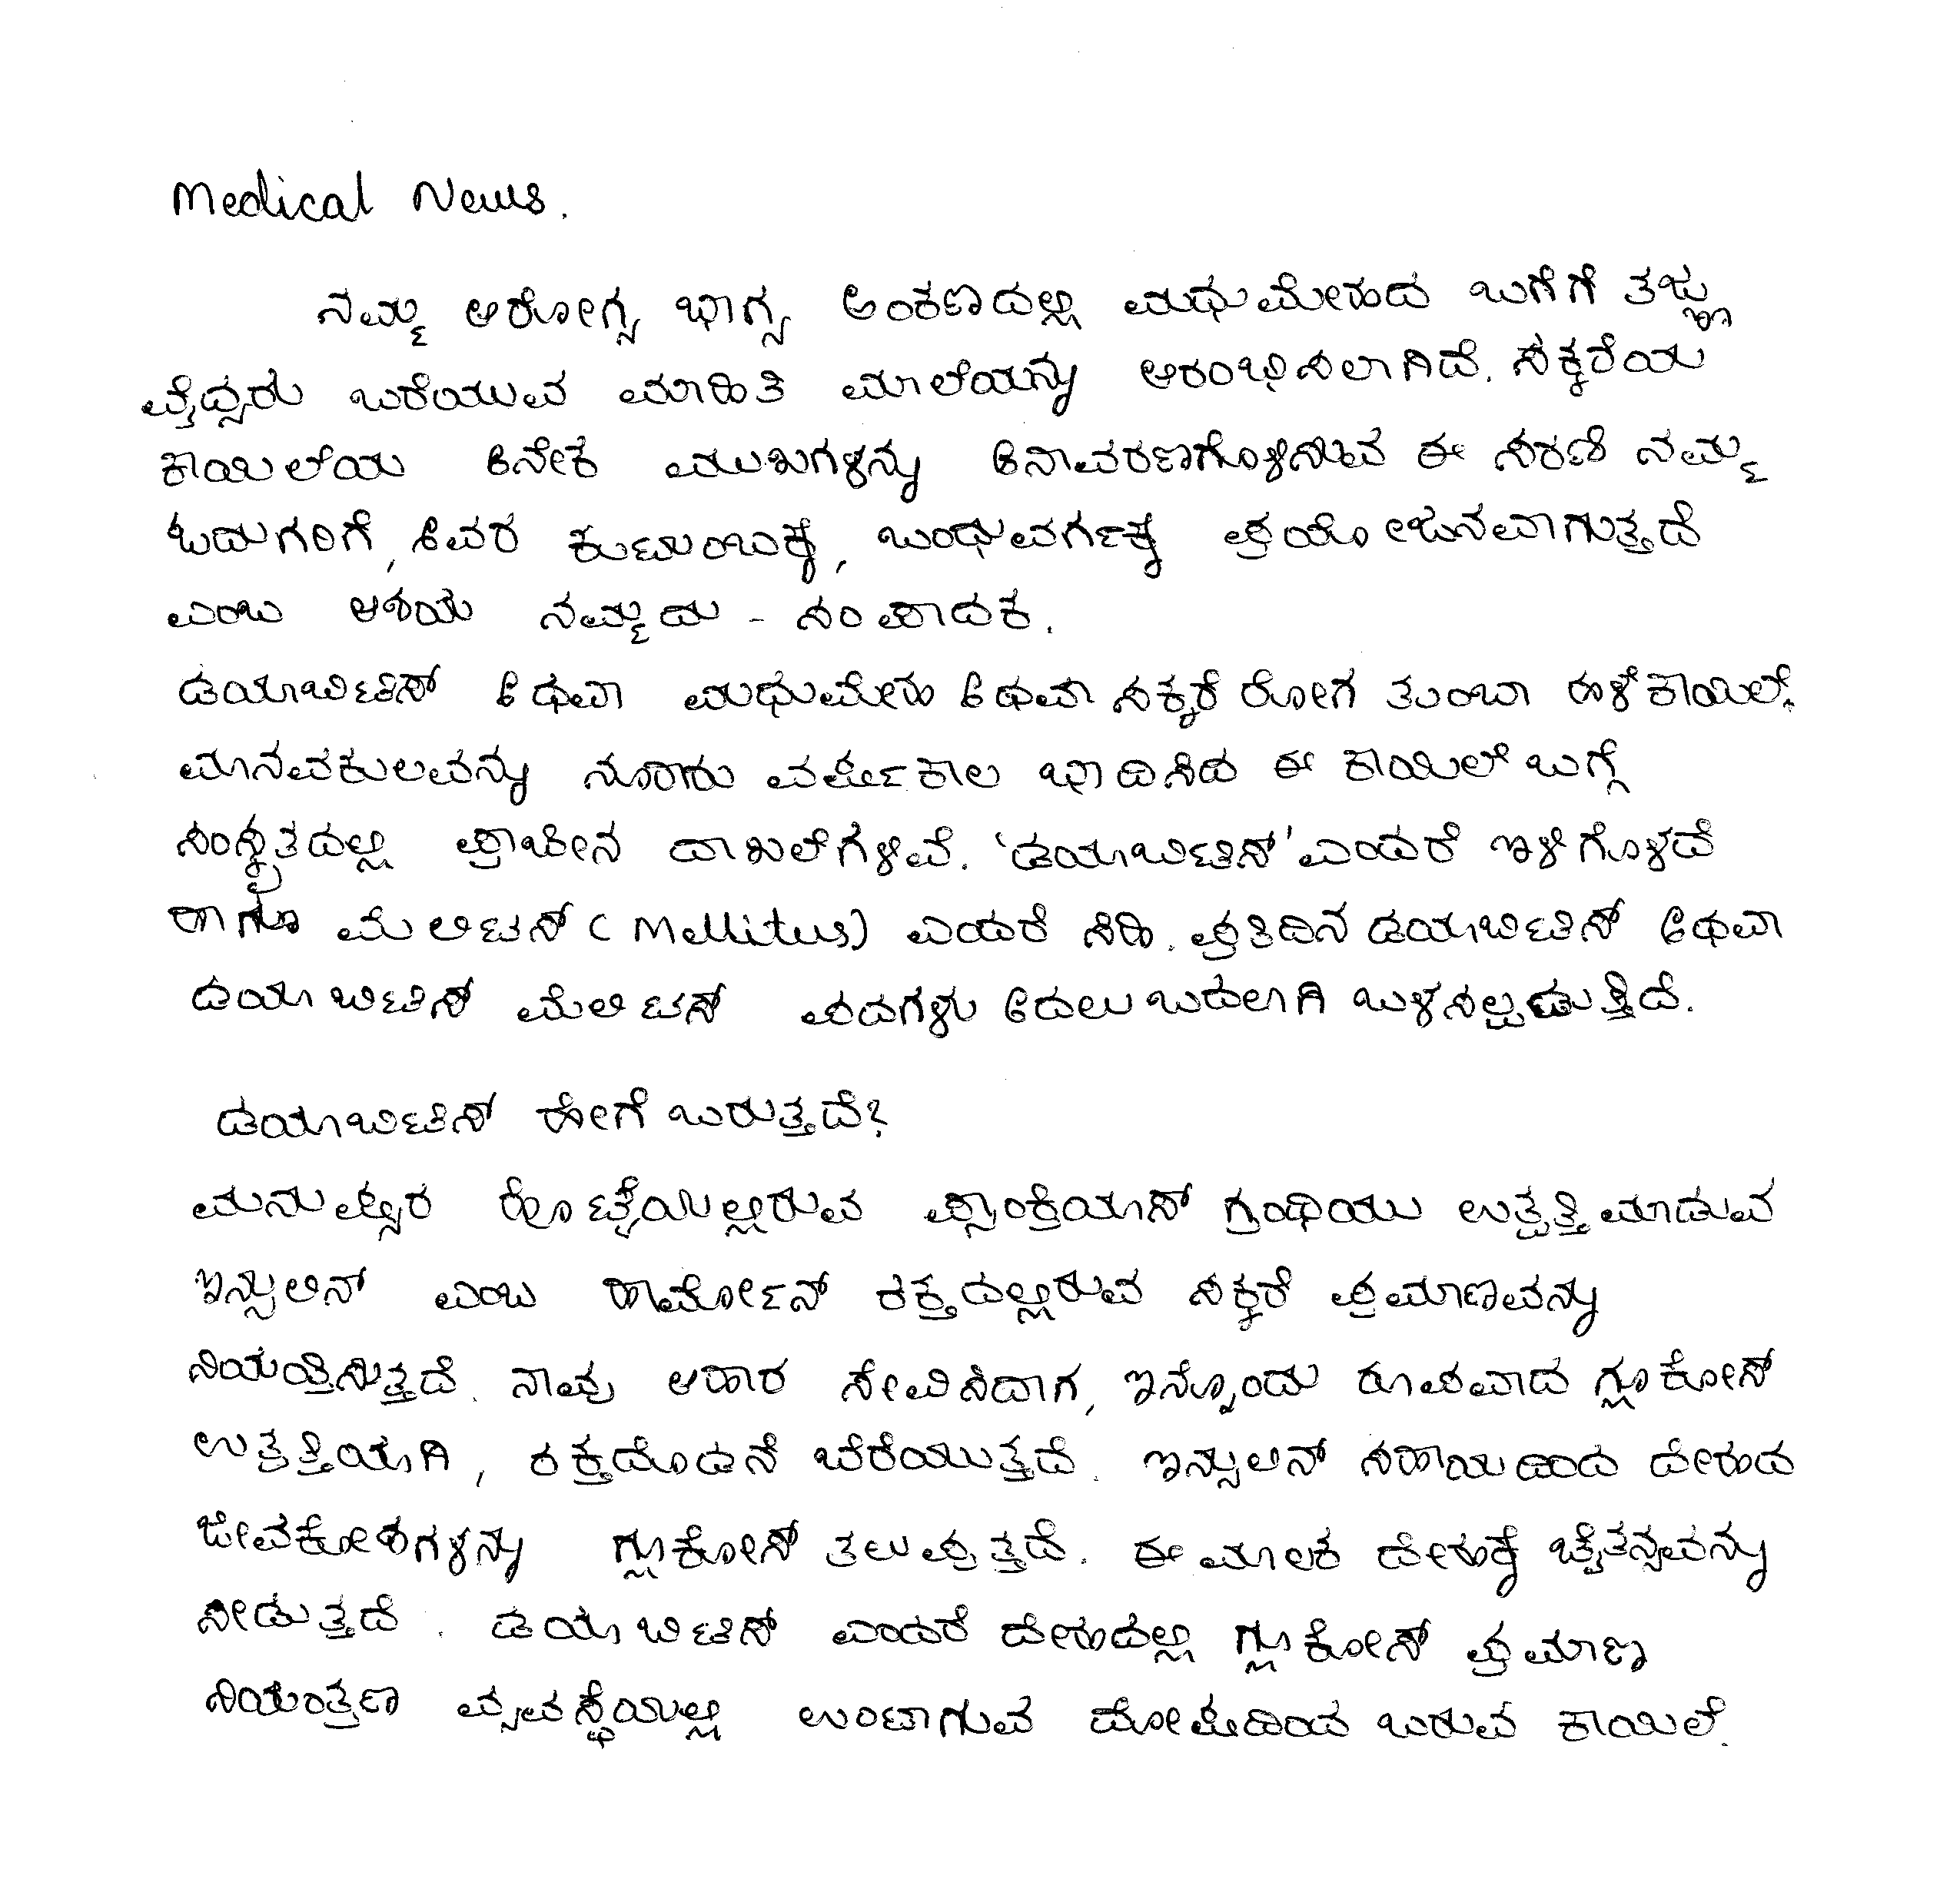 Medical News.
ನಮ್ಮ ಆರೋಗ್ಯ ಭಾಗ್ಯ ಅಂಕಣದಲ್ಲಿ ಮಧುಮೇಹದ ಬಗೆಗೆ ತಜ್ಞ
ವೈದ್ಯರು ಬರೆಯುವ ಮಾಹಿತಿ ಮಾಲೆಯನ್ನು ಆರಂಭಿಸಲಾಗಿದೆ. ಸಕ್ಕರೆಯ
ಕಾಯಿಲೆಯ ಅನೇಕ ಮುಖಗಳನ್ನು ಅನಾವರಣಗೊಳಿಸುವ ಈ ಸರಣಿ ನಮ್ಮ
ಓದುಗರಿಗೆ, ಅವರ ಕುಟುಂಬಕ್ಕೆ, ಬಂಧುವರ್ಗಕ್ಕೆ ಪ್ರಯೋಜನವಾಗುತ್ತದೆ
ಎಂಬ ಆಶಯ ನಮ್ಮದು - ಸಂಪಾದಕ.
ಡಯಾಬಿಟಿಸ್ ಅಥವಾ ಮಧುಮೇಹ ಅಥವಾ ಸಕ್ಕರೆ ರೋಗ ತುಂಬಾ ಹಳೆಕಾಯಿಲೆ.
ಮಾನವಕುಲವನ್ನು ನೂರಾರು ವರ್ಷಕಾಲ ಭಾದಿಸಿದ ಈ ಕಾಯಿಲೆ ಬಗ್ಗೆ
ಸಂಸ್ಕೃತದಲ್ಲಿ ಪ್ರಾಚೀನ ದಾಖಲೆಗಳಿವೆ. 'ಡಯಾಬಿಟಿಸ್' ಎಂದರೆ ಇಳಿಗೊಳದೆ
ಹಾಗೂ ಮೆಲಿಟಸ್ (Mellitus) ಎಂದರೆ ಸಿಹಿ. ಪ್ರತಿದಿನ ಡಯಾಬಿಟಿಸ್ ಅಥವಾ
ಡಯಾಬಿಟಿಸ್ ಮೆಲಿಟಸ್ ಪದಗಳು ಅದಲು ಬದಲಾಗಿ ಬಳಸಲ್ಪಡುತ್ತಿದೆ.
ಡಯಾಬಿಟಿಸ್ ಹೇಗೆ ಬರುತ್ತದೆ?
ಮನುಷ್ಯರ ಹೊಟ್ಟೆಯಲ್ಲಿರುವ ಪ್ಯಾಂಕ್ರಿಯಾಸ್ ಗ್ರಂಥಿಯು ಉತ್ಪತ್ತಿ ಮಾಡುವ
ಇನ್ಸುಲಿನ್ ಎಂಬ ಹಾರ್ಮೋನ್ ರಕ್ತದಲ್ಲಿರುವ ಸಕ್ಕರೆ ಪ್ರಮಾಣವನ್ನು
ನಿಯಂತ್ರಿಸುತ್ತದೆ. ನಾವು ಆಹಾರ ಸೇವಿಸಿದಾಗ, ಇನ್ನೊಂದು ರೂಪವಾದ ಗ್ಲೂಕೋಸ್
ಉತ್ಪತ್ತಿಯಾಗಿ, ರಕ್ತದೊಡನೆ ಬೆರೆಯುತ್ತದೆ. ಇನ್ಸುಲಿನ್ ಸಹಾಯದಿಂದ ದೇಹದ
ಜೀವಕೋಶಗಳನ್ನು ಗ್ಲುಕೋಸ್ ತಲುಪುತ್ತದೆ. ಈ ಮೂಲಕ ದೇಹಕ್ಕೆ ಚೈತನ್ಯವನ್ನು
ನೀಡುತ್ತದೆ. ಡಯಾಬಿಟಿಸ್ ಎಂದರೆ ದೇಹದಲ್ಲಿ ಗ್ಲುಕೋಸ್ ಪ್ರಮಾಣ
ನಿಯಂತ್ರಣ ವ್ಯವಸ್ಥೆಯಲ್ಲಿ ಉಂಟಾಗುವ ದೋಷದಿಂದ ಬರುವ ಕಾಯಿಲೆ.